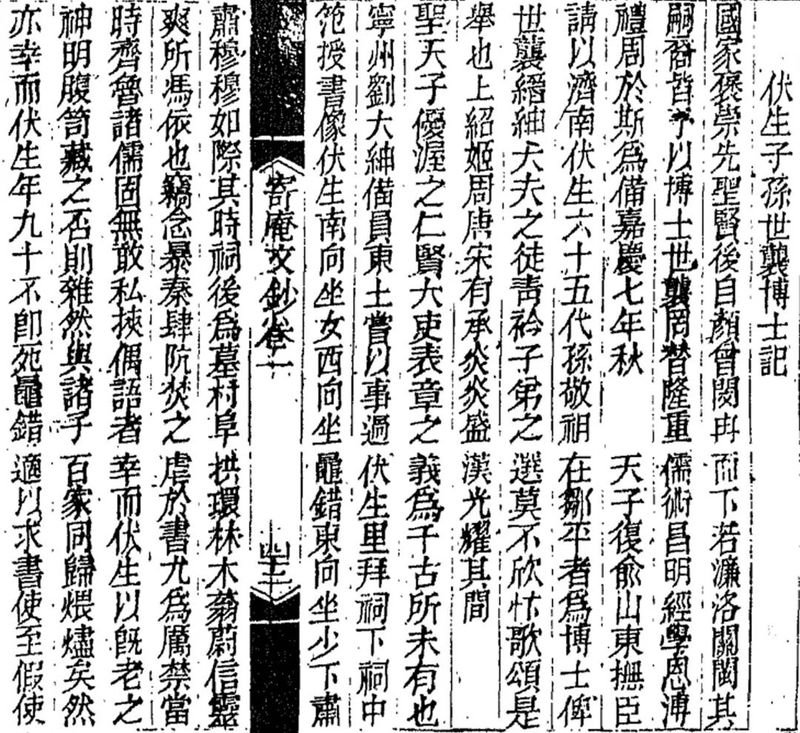 伏生子孫世襲博士記
國家褒崇先聖賢後自顏曾閔冉而下若濂洛關閩其
嗣裔皆予以博士世襲罔替隆重儒術昌明經學恩溥
禮周於斯為備嘉慶七年秋　　天子復俞山東撫臣
請以濟南伏生六十五代孫敬祖在鄒平者為博士俾
世襲縉紳大夫之徒青衿子弟之選莫不欣忭歌頌是
舉也上紹姬周唐宋有承炎炎盛漢光耀其間
聖天子優渥之仁賢大吏表章之義為千古所未有也
寧州劉大紳備員東土嘗以事過伏生里拜祠下祠中
范授書像伏生南向坐女西向坐鼂錯東向坐少下肅
寄庵文鈔卷一　四十二
肅穆穆如際其時祠後為墓村阜拱環林木蓊蔚信靈
爽所馮依也竊念暴秦肆阬焚之虐於書尤為厲禁當
時齊魯諸儒固無敢私挾偶語者幸而伏生以旣老之
神明腹笥藏之否則雜然與諸子百家同歸煨燼矣然
亦幸而伏生年九十不卽死鼂錯適以求書使至假使